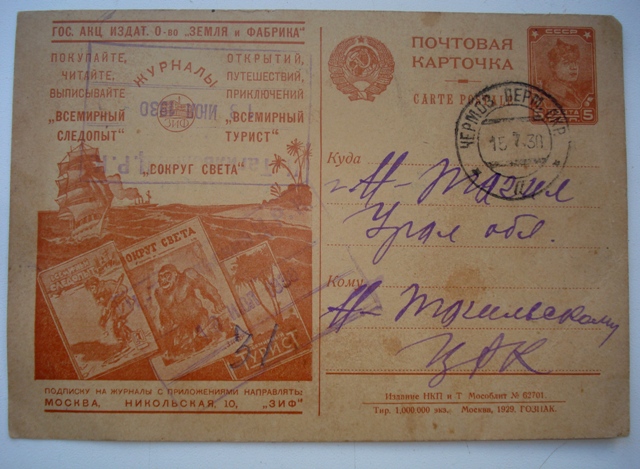 ГОС. АКЦ ИЗДАТ. О-во "ЗЕМЛЯ и ФАБРИКА"
ПОКУПАЙТЕ,
ЧИТАЙТЕ,
ВЫПИСЫВАЙТЕ
"ВСЕМИРНЫЙ
СЛЕДОПЫТ"
ЖУРНАЛЫ
ЗИФ
ОТКРЫТИЙ,
ПУТЕШЕСТВИЙ,
ПРИКЛЮЧЕНИЙ
"ВСЕМИРНЫЙ
ТУРИСТ"
"ВОКРУГ СВЕТА"
ИЮЛ 1930
ВОКРУГ СВЕТА
ТУРИСТ
ПОДПИСКУ НА ЖУРНАЛЫ С ПРИЛОЖЕНИЯМИ НАПРАВЛЯТЬ:
МОСКВА, НИКОЛЬСКАЯ, 10, "ЗИФ"
ПОЧТОВАЯ
КАРТОЧКА
CARTE POSTALE
СССР
5
ЧЕРМОЗ ПЕРМ. ОКР.
15.7.30
Куда
Н-Тагил
Урал обл.
Кому
Н-Тагильскому
ЦРК
Издание НКП и Т Мособлит № 62701.
Тир. 1.000.000 экз. Москва, 1929, ГОЗНАК.